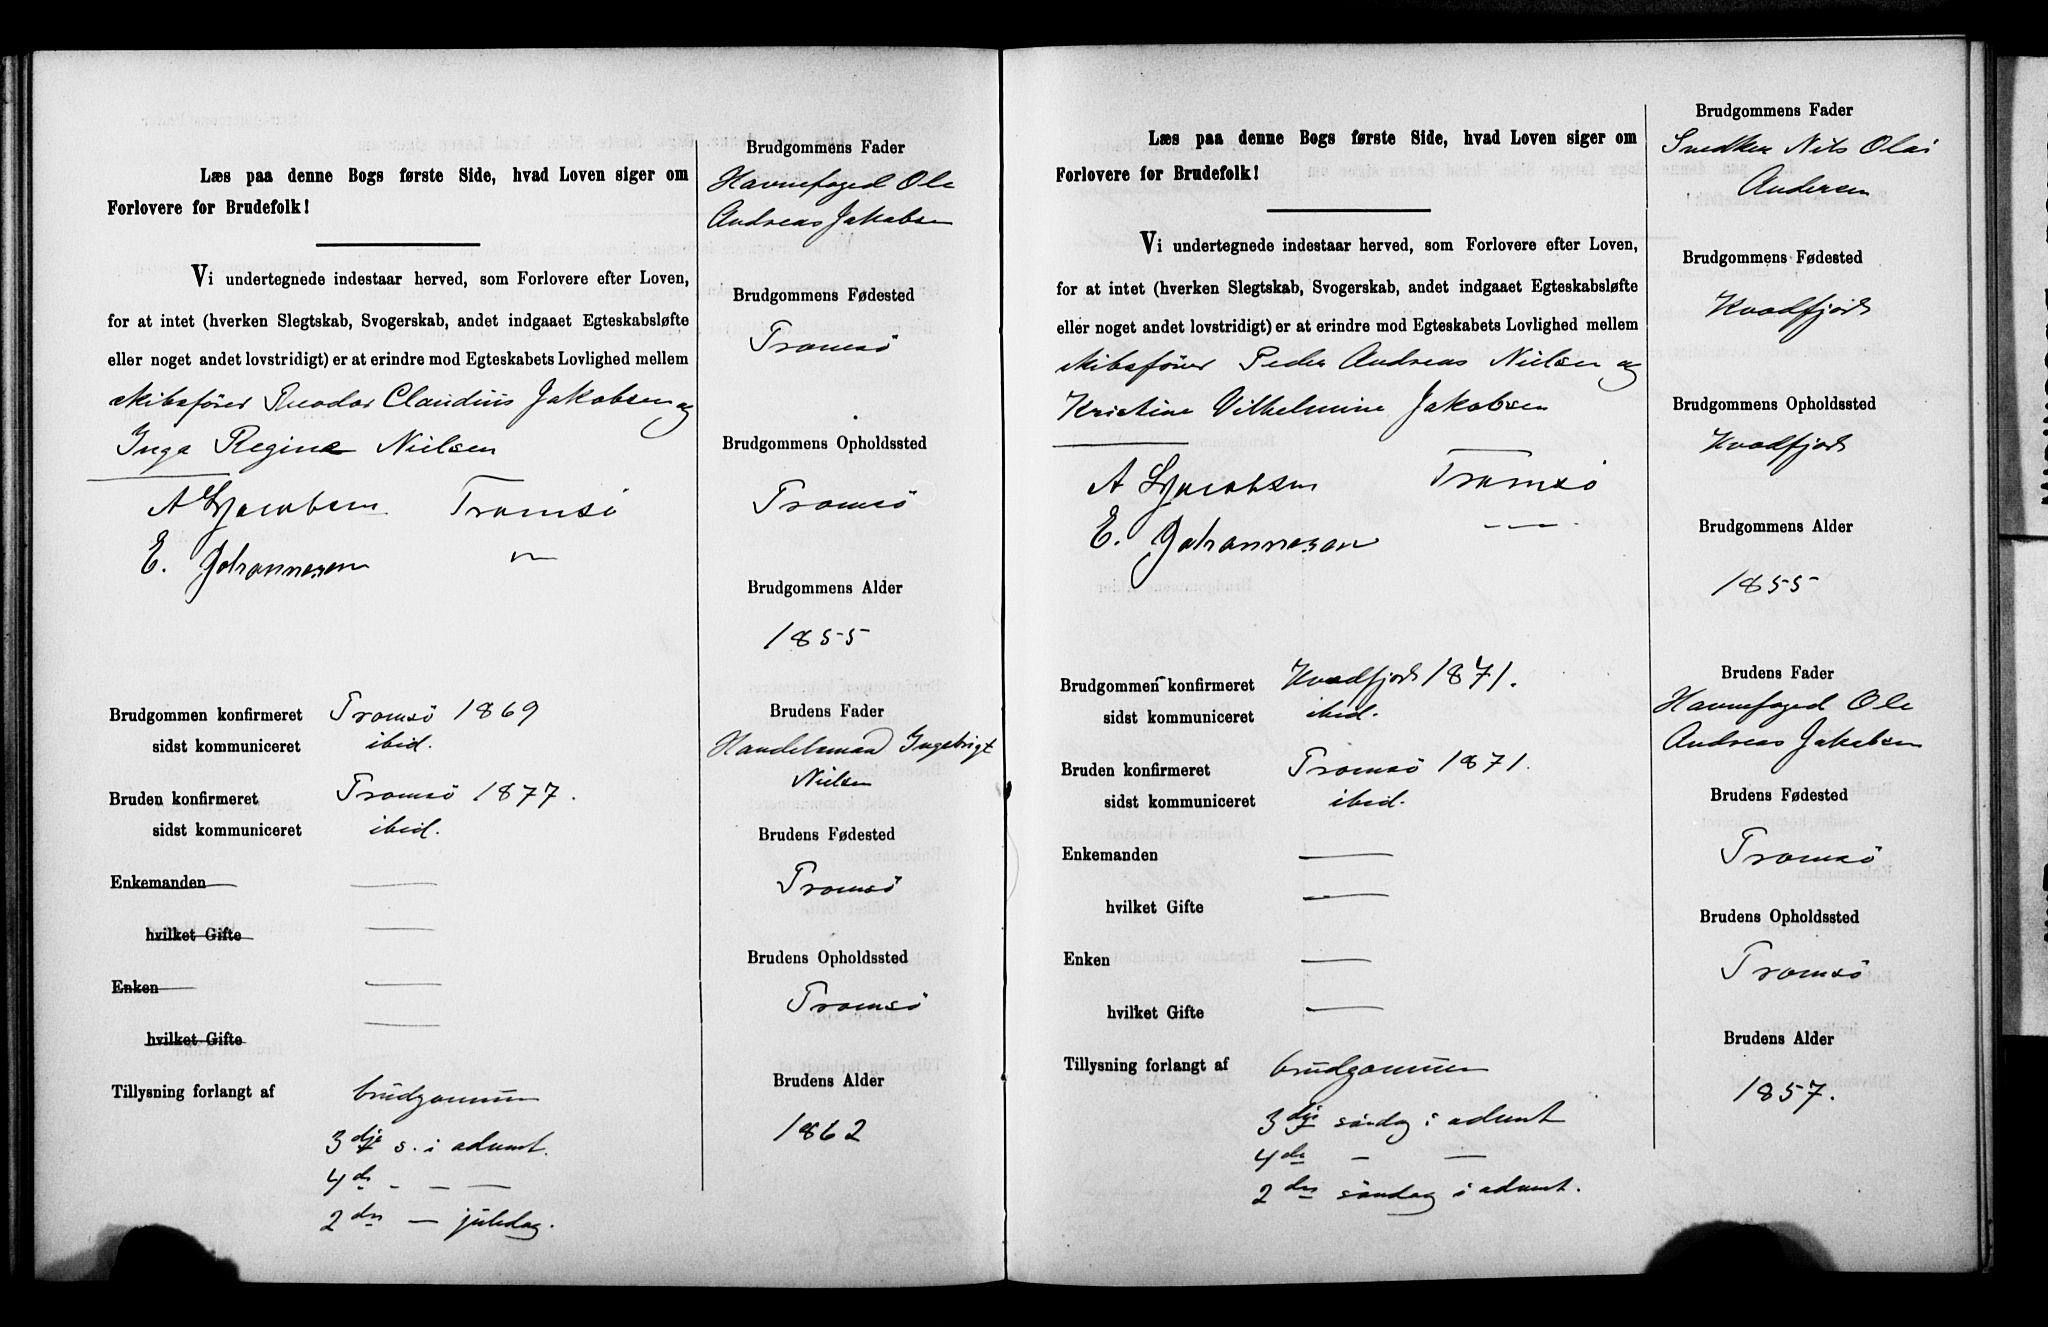 Læs paa denne Bogs første Side, hvad Loven siger om
Forlovere for Brudefolk!
Vi undertegnede indestaar herved, som Forlovere efter Loven,
for at intet (hverken Slegtskab, Svogerskab, andet indgaaet Egteskabsløfte
eller noget andet lovstridigt) er at erindre mod Egteskabets Lovlighed mellem
skibsfører Theodor Claudius Jakobsen og
Inga Regine Nielsen
A Jacobsen Tromsö
E. Johannesen —"—
Brudgommen konfirmeret Tromsö 1869
sidst kommuniceret ibid.
Bruden konfirmeret Tromsö 1877.
sidst kommuniceret ibid.
Enkemanden —
hvilket Gifte —
Enken —
hvilket Gifte —
Tillysning forlangt af brudgommen
3dje s. i advent.
4de - — —
2den — juledag.
Brudgommens Fader
Havnefoged Ole
Andreas Jakobsen
Brudgommens Fødested
Tromsö
Brudgommens Opholdssted
Tromsö
Brudgommens Alder
1855
Brudens Fader
Handelsmand Ingebrigt
Nielsen
Brudens Fødested
Tromsö
Brudens Opholdssted
Tromsö
Brudens Alder
1862
Læs paa denne Bogs første Side, hvad Loven siger om
Forlovere for Brudefolk!
Vi undertegnede indestaar herved, som Forlovere efter Loven,
for at intet (hverken Slegtskab, Svogerskab, andet indgaaet Egteskabsløfte
eller noget andet lovstridigt) er at erindre mod Egteskabets Lovlighed mellem
skibsfører Peder Andreas Nielsen og
Kristine Vilhelmine Jakobsen
A Jacobsen Tromsö
E. Johannesen — — .
Brudgommen konfirmeret Kvædfjord 1871.
sidst kommuniceret ibid.
Bruden konfirmeret Tromsö 1871.
sidst kommuniceret ibid.
Enkemanden —
hvilket Gifte —
Enken —
hvilket Gifte —
Tillysning forlangt af brudgommen
3dje söndag i advent
4de — —
2den söndag i advent.
Brudgommens Fader
Snedker Nils Olai
Andersen
Brudgommens Fødested
Kvædfjord
Brudgommens Opholdssted
Kvædfjord
Brudgommens Alder
1855
Brudens Fader
Havnefoged Ole
Andreas Jakobsen
Brudens Fødested
Tromsö
Brudens Opholdssted
Tromsö
Brudens Alder
1857.